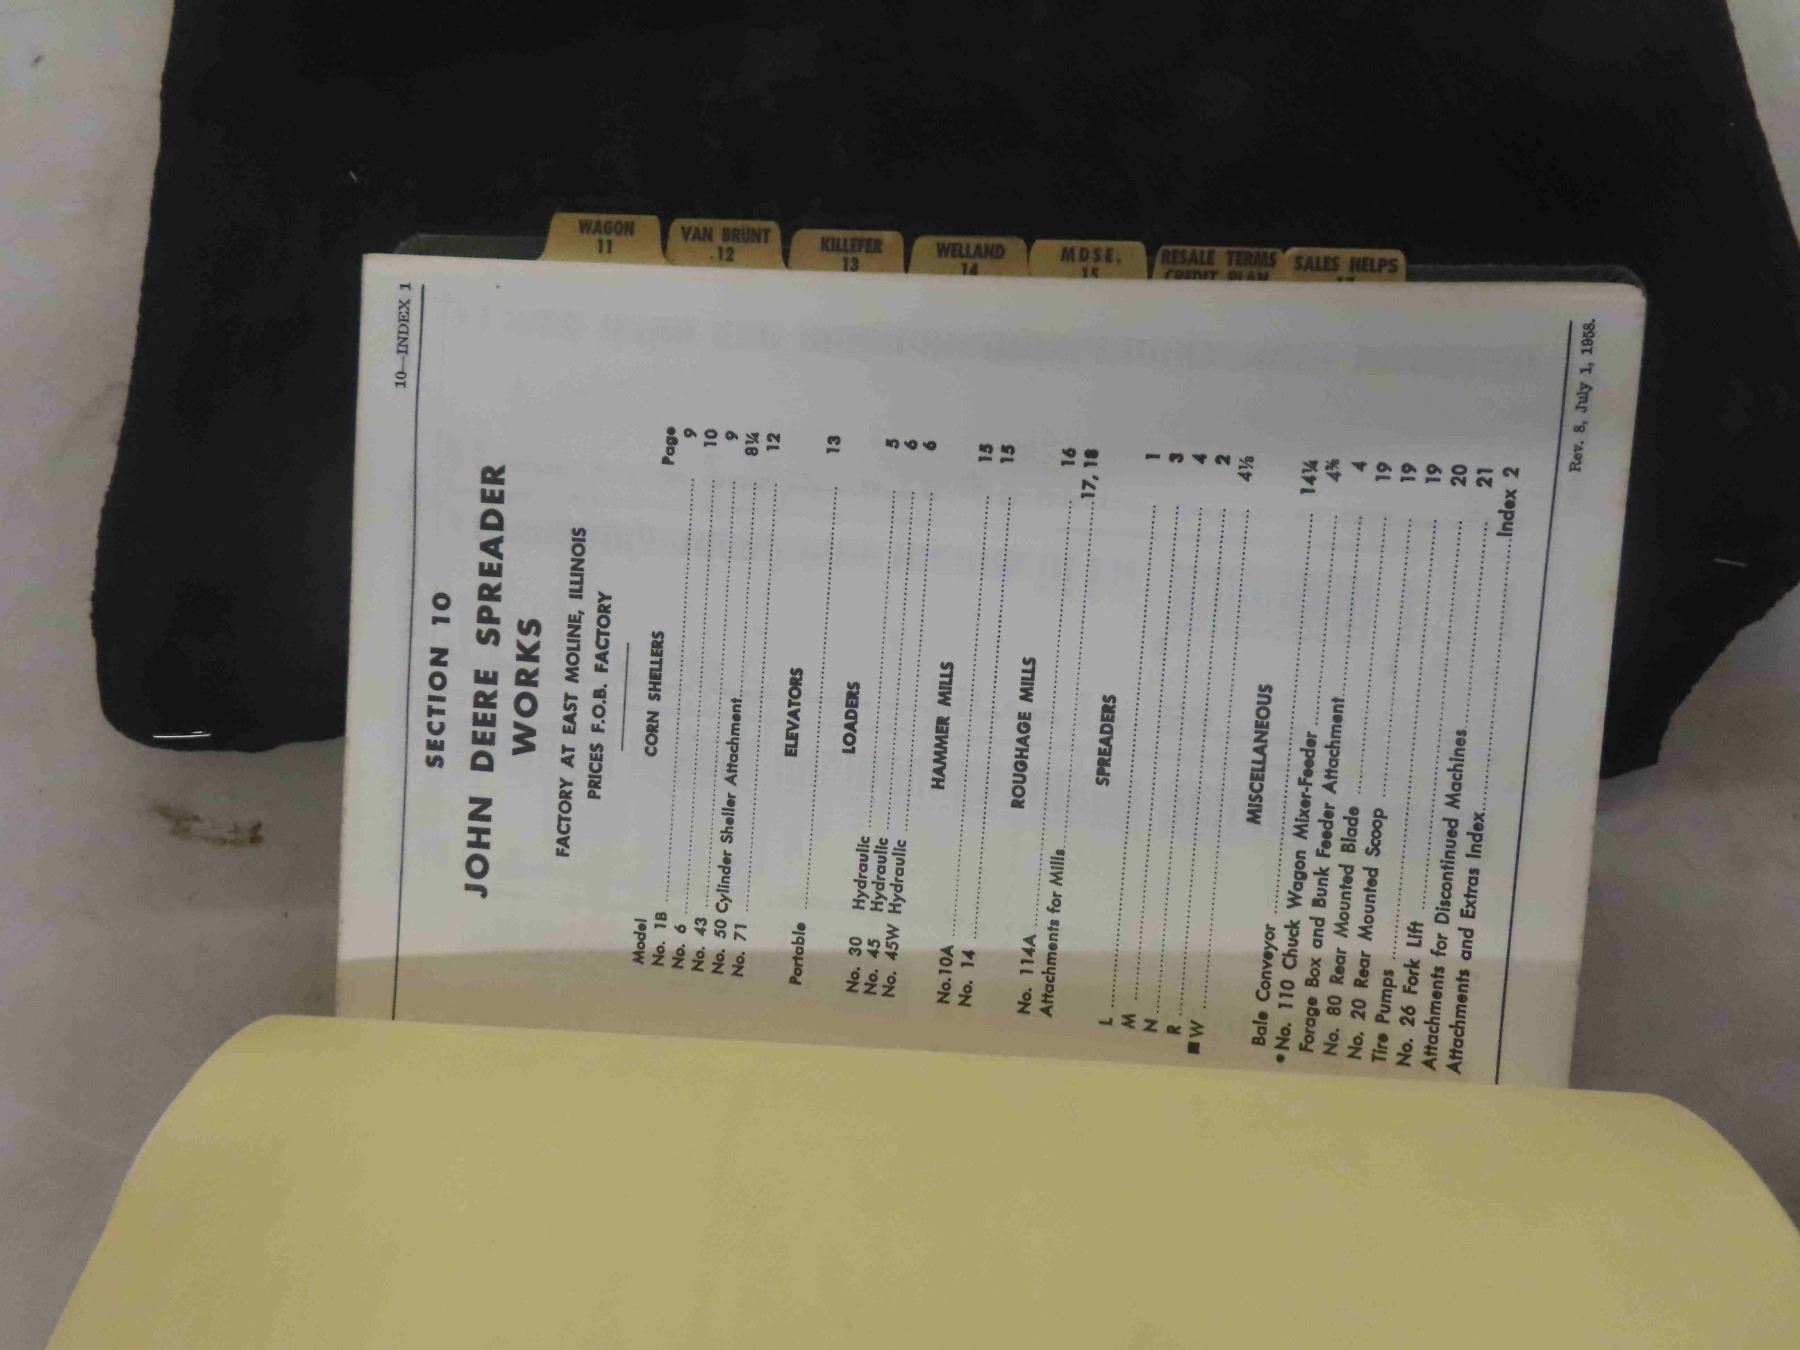 WAGON
11
VAN BRUNT
12
KILLEFER
13
WELLAND
14
MDSE.
15
RESALE TERMS
CREDIT PLAN
SALES HELPS
10—INDEX 1
SECTION 10
JOHN DEERE SPREADER
WORKS
FACTORY AT EAST MOLINE, ILLINOIS
PRICES F.O.B. FACTORY
CORN SHELLERS
Model Page
No. 1B 9
No. 6 10
No. 43 9
No. 50 Cylinder Sheller Attachment 8¼
No. 71 12
ELEVATORS
Portable 13
LOADERS
No. 30 Hydraulic 5
No. 45 Hydraulic 6
No. 45W Hydraulic 6
HAMMER MILLS
No.10A 15
No. 14 15
ROUGHAGE MILLS
No. 114A 16
Attachments for Mills 17, 18
SPREADERS
L 1
M 3
N 4
R 2
■ W 4⅛
MISCELLANEOUS
Bale Conveyor 14¼
• No. 110 Chuck Wagon Mixer-Feeder 4⅜
Forage Box and Bunk Feeder Attachment 4
No. 80 Rear Mounted Blade 19
No. 20 Rear Mounted Scoop 19
Tire Pumps 19
No. 26 Fork Lift 20
Attachments for Discontinued Machines 21
Attachments and Extras Index Index 2
Rev. 8, July 1, 1958.